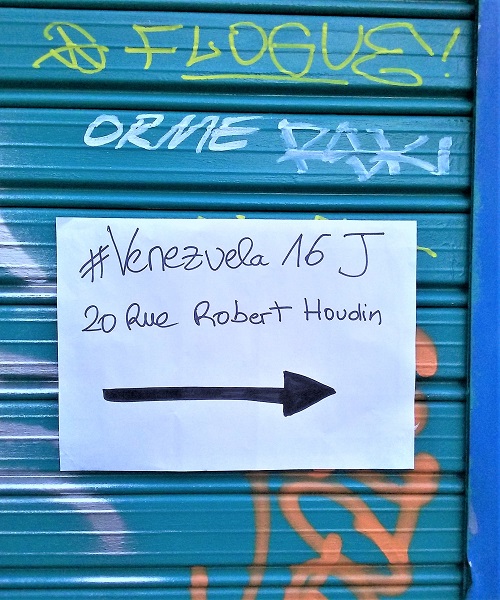 FLOGUE!
ORME
#Venezuela 16 J
20 Rue Robert Houdin